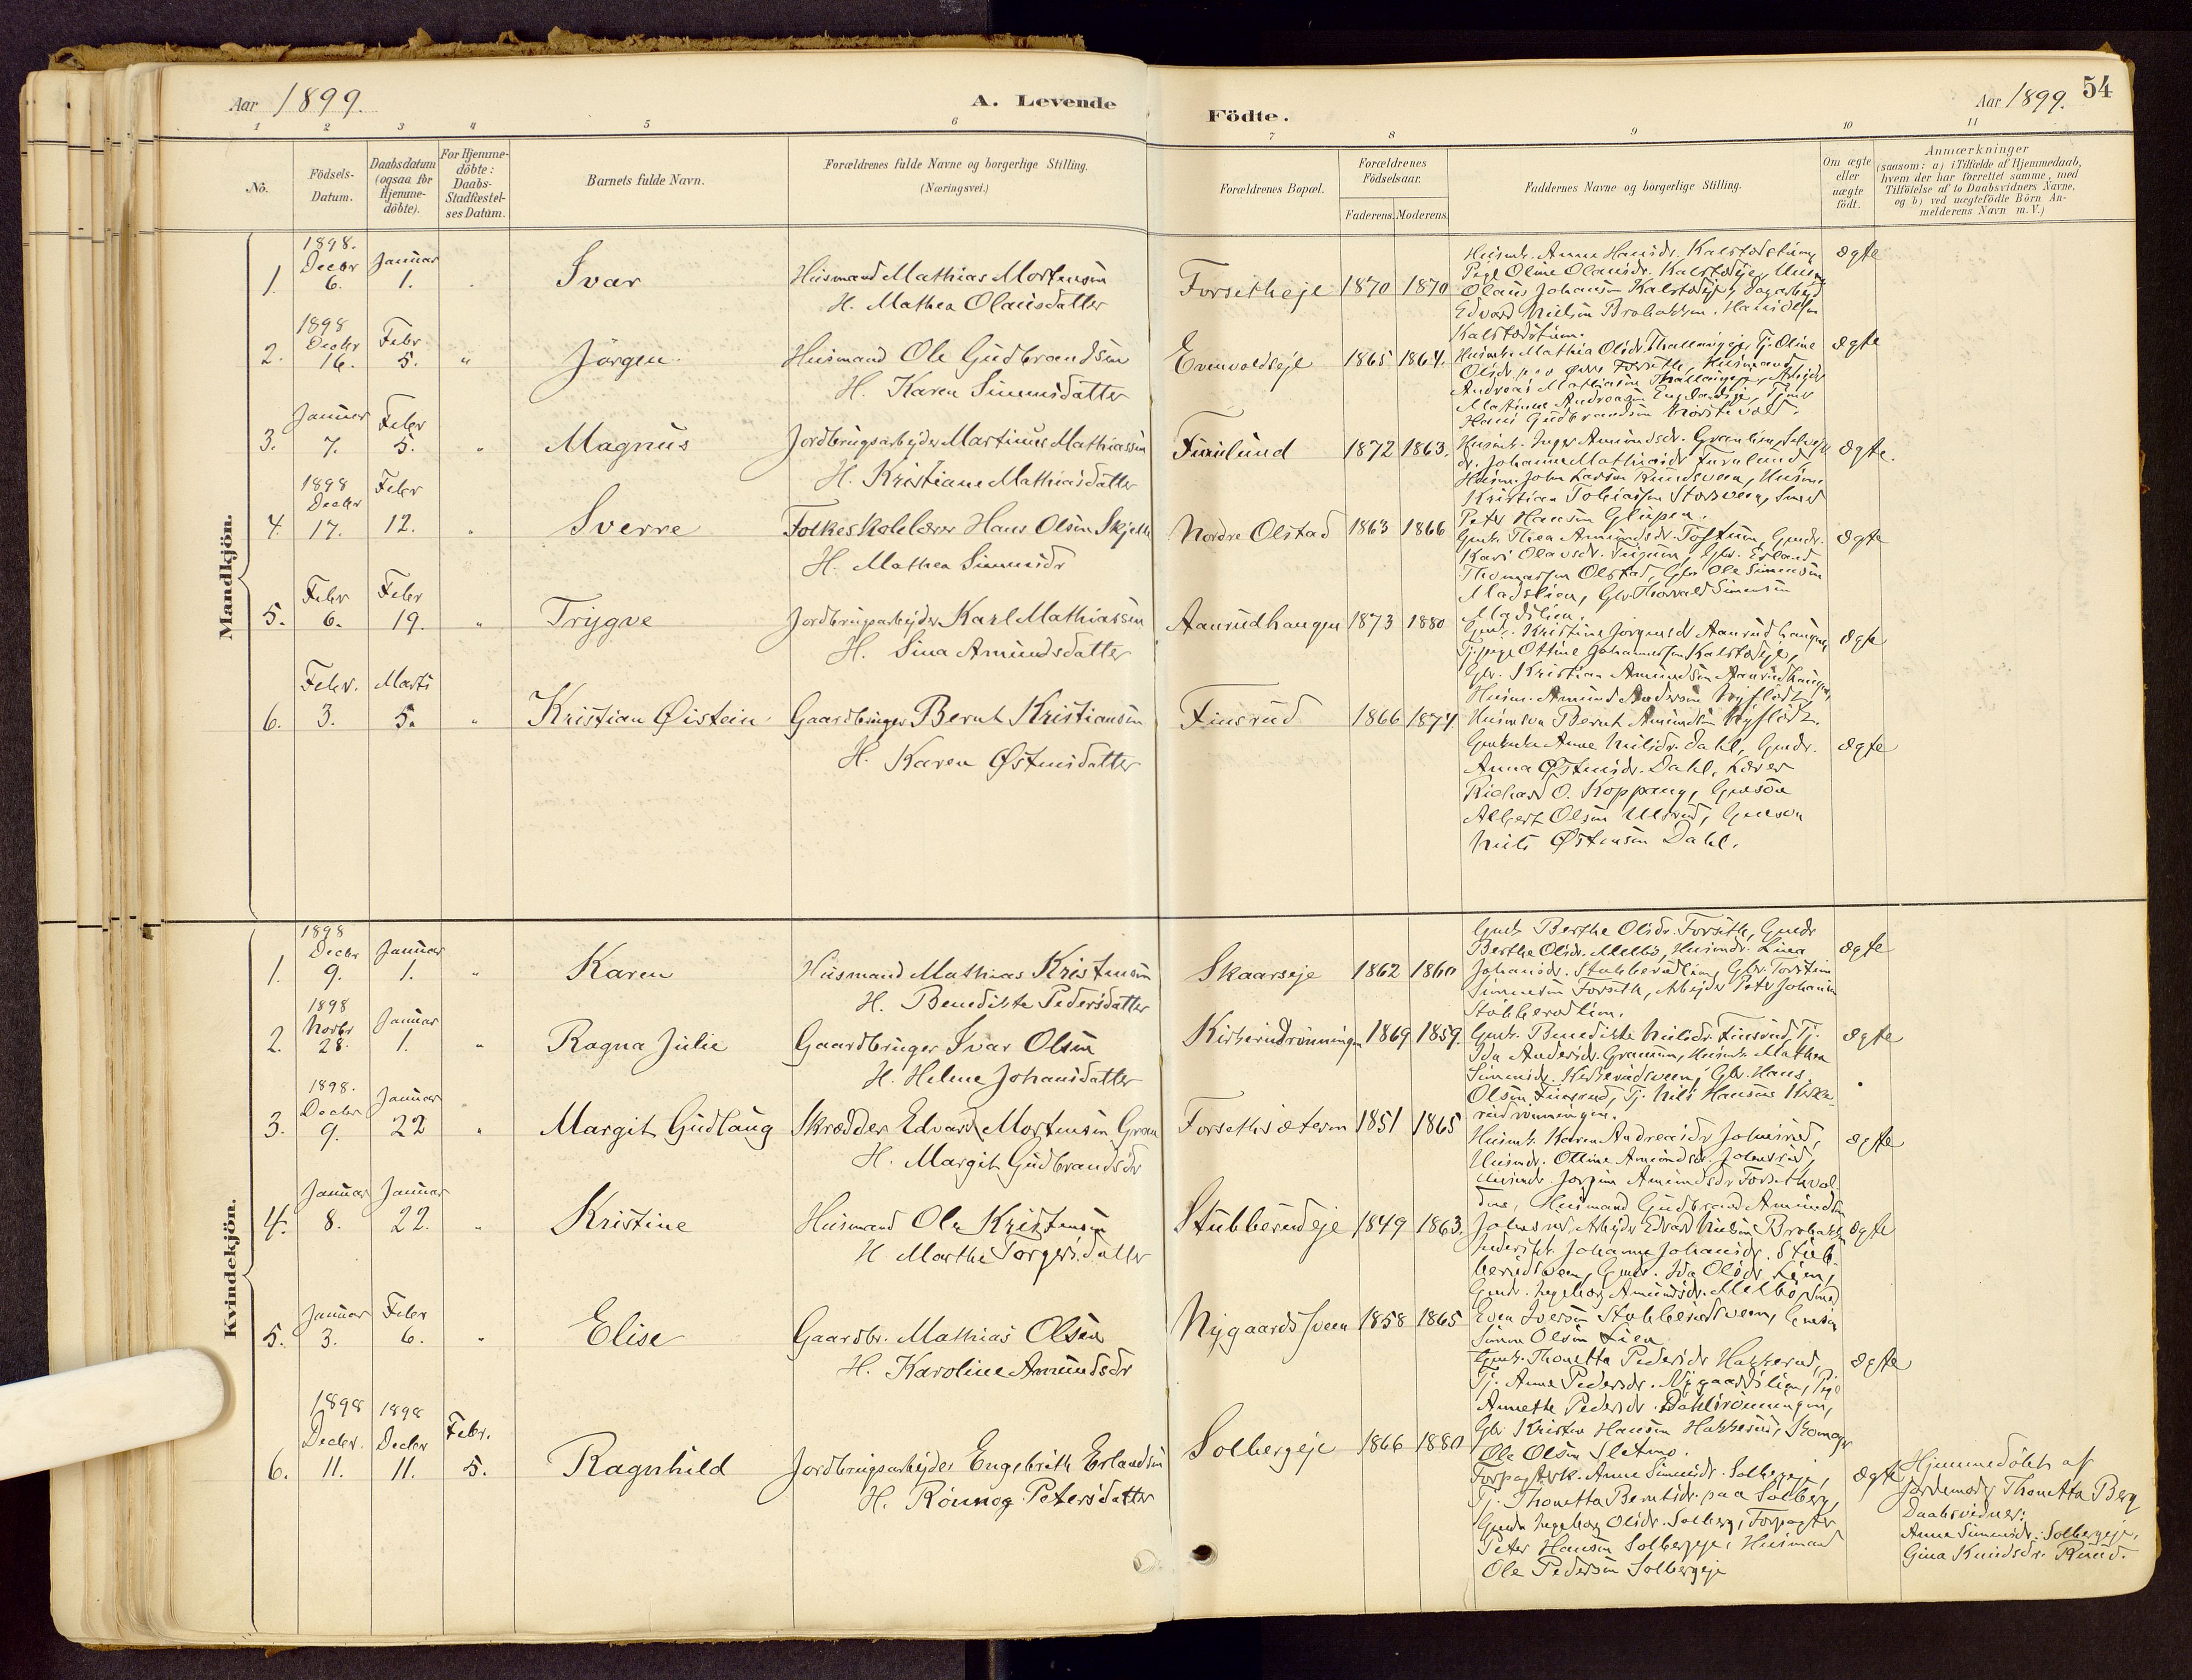 Aar 1899.
A. Levende
Födte.
Aar 1899.
54
1 2 3 4 5 6 7 8 9 10 11
Nô.
Födsels-
Datum.
Daabsdatum
(ogsaa för
Hjemme-
döbte).
For Hjemme-
döbte:
Daabs-
Stadfæstel-
ses Datum.
Barnets fulde Navn.
Forældrenes fulde Navne og borgerlige Stilling.
(Næringsvei.)
Forældrenes Bopæl.
Forældrenes
Födselsaar.
Faderens. Moderens.
Faddernes Navne og borgerlige Stilling.
Om ægte
eller
uægte
födt.
Anmærkninger
(saasom: a) i Tilfælde af Hjemmedaab,
hvem der har forrettet samme, med
Tilföielse af to Daabsvidners Navne,
og b) ved uægtefödte Börn An-
melderens Navn m. V.)
Mandkjön.
1898.
Decbr Januar
1. 6. 1. Ivar
Husmand Mathias Mortensen
H. Mathea Olausdatter
Forsetheje 1870 1870
Husmk. Anne Hansdr. Kalstadstuen
Pige Oline Olausdr. Kalstadeje, Husm
Olaus Johansen Kalstadeje, Dagarbejd
Edvard Nielsen Brobakken,
Kalstadstuen.
ægte
1898
Decbr Febr
2. 16. 5. " Jörgen
Husmand Ole Gudbrandsen
H. Karen Simensdatter
Evenvoldseje 1865 1864.
Husmk. Mathia Olsdr. Thallaugeje, Tj. Oline
Olsdr. Forseth, Husmand
Andreas Mathiasen Thallaugeje, Arbejder
Martinus Andreasen
Hans Gudbrandsen
ægte
Januar Febr
3. 7. 5. " Magnus
Jordbrugsarbejder Martinus Mathiassen
H. Kristiane Mathiasdatter
Furulund 1872 1863.
Husmk. Inger Amundsdr. Granlien,
dr. Johanne Mathiasdr Furulund,
Husm John Larsen Rundsveen, Husm.
Kristian Tobiassen Storsveen, Smed
Peter Hansen Glupen.
ægte.
1898
Decbr Febr
4. 17. 12. " Sverre
Folkeskolelærer Hans Olsen Skjelle
H. Mathea Simensdr
Nordre Olstad 1863 1866
Gmk. Thea Amundsdr. Toftum, Gmdr.
Kari Olausdr. Gbr. Erland
Thomassen Olstad, Gbr Ole Simensen
Madslien, Gbr. Thorvald Simensen
Madslien.
ægte
Febr Febr
5. 6. 19. " Trygve
Jordbrugsarbejder Karl Mathiassen
H. Sina Amundsdatter
Aanrudhaugen 1873 1880
Gmk. Kristine Jörgensdr Aanrudhaugen,
Tj.pige Ottine Johannessen Kalstadeje,
Gbr. Kristian Amundsen Aanrudhaugen,
Husm. Amund Andersen Nyflödt,
Husmsön Bernt Amundsen Nyflödt.
ægte
Febr. Marts
6. 3. 5. " Kristian Øistein
Gaardbruger Bernt Kristiansen
H. Karen Østensdatter
Finsrud 1866 1874
Anne Nilsdr. Dahl, Gmdr.
Anna Østensdr. Dahl, Lærer
Richard O. Koppang, Gmsön
Albert Olsen Ulsrud, Gmsön
Nils Østensen Dahl.
ægte
Kvindekjön.
1898
Decbr Januar
1. 9. 1. " Karen
Husmand Mathias Kristensen
H. Benedikte Pedersdatter
Skaarseje 1862 1860
Gmk Berthe Olsdr. Forseth, Gmdr
Berthe Olsdr. Melbö, Husmdr. Lina
Johansdr. Stubberudlien, Gbr. Torstein
Simensen Forseth, Arbejder Peter Johansen
Stubberudlien.
ægte
1898
Novbr Januar
2. 28. 1. " Ragna Julie
Gaardbruger Ivar Olsen
H. Helene Johansdatter
Kirkerudrönningen 1869 1859.
Gmk. Benedikte Nilsdr. Finsrud, Tj.
Ida Andersdr. Husmk. Mathea
Simensdr. Kirkerudsveen, Gbr. Hans
Olsen Finsrud, Tj. Nils Hansen Kirke-
rudrönningen.
ægte
1898.
Decbr Januar
3. 9. 22 " Margit Gudlaug
Skrædder Edvard Mortensen Gran
H. Margit Gudbrandsdr
Forsethsæteren 1851 1865
Husmk. Karen Andreasdr Johnsrud,
Husmdr. Ottine Amundsdr. Johnsrud,
Husmdr. Jörgine Amundsdr Forsethvol-
den, Husmand Gudbrand Amundsen
Johnsrud, Arbejder Edvard Nielsen Brobakken
ægte
Januar Januar
4. 8. 22. " Kristine
Husmand Ole Kristensen
H Marthe Torgersdatter
Stubberudeje 1849 1863.
Johanne Johansdr. Stub-
berudsveen, Gmdr. Ida Olsdr. Lien,
Gmdr. Ingeborg Amundsdr. Melbö, Smed
Even Iversen Stubberudsveen, Gmsön
Simen Olsen Lien
ægte
Januar Febr
5. 3. 6. " Elise
Gaardbr. Mathias Olsen
H. Karoline Amundsdr
Nygaardssveen 1858 1865
Gmk. Thonetta Pedersdr Hakkerud,
Tj. Anne Pedersdr. Nygaardslien, Pige
Annette Pedersdr. Dahlsrönningen,
Gbr Kristen Hansen Hakkerud, Skomager
Ole Olsen Sletmo.
ægte
1898 1898
Decbr. Decbr Febr.
6. 11. 11. 5. Ragnhild
Jordbrugsarbejder Engebrith Erlandsen
H. Rönnog Petersdatter
Solbergeje 1866 1880
Forpagterk. Anne Simensdr. Solbergeje,
Tj. Thonetta Berntsdr. paa Solberg,
Gmdr Ingeborg Olsdr. Solberg, Forpagter
Peter Hansen Solbergeje, Husmand
Ole Pedersen Solbergeje
ægte
Hjemmedöbt af
Jordemoder Thonetta Berg
Daabsvidner:
Anne Simensdr. Solbergeje,
Gina Knudsdr. Ruud.